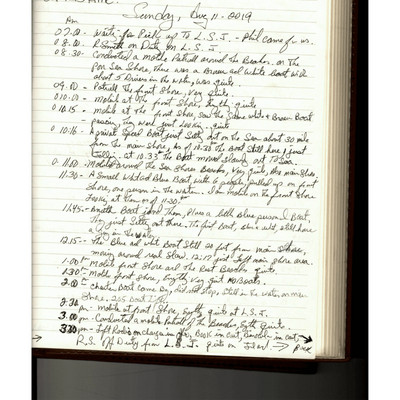 Sunday, Aug 11-2019
Am
07:00 - Waits for Pickup to L.S.J. - Phil came for us.
08:00 - R Smith on Duty on L.S.J.
08:30 - Conducted a mobile Patrol around the Beaches. on The
Sea Shore, There was a Brown and White Boat with
about 5 Divers in the Water, was quite.
09:00 - Patroll The front Shore, Very quite.
010:00 - mobile at The front Shore, quite
010:15 - mobile at The front Shore, saw the same white & Brown Boat
passing, They went just looking. quite
0 10:18 - A private Speed Boat just Sitts out on the Sea about 30 miles
from the main shore, as of 11:28 The Boat Still here, just
at 10:33 The Boat moved slowly out to Sea.
0. 11:00 - Mobile around The Sea Shores Beaches, Very quite, this main Shore.
11:30 - A Small White & Blue Boat with 6 people, pulled up on front
Shore, one person in the Water. I am mobile on the front Shore
at 11:30
11:45 - Another Boat joined Them, Plus a little Blue personal Boat,
They just Sitts out there. The first Boat, Blue & white, still have
a Guy in the Water
12:15 - The Blue and white Boat Still 20 feet from main Shore,
moving around real Slow. 12:17 just left main shore area.
1:00 - Mobile front Shore and The Rest Beaches quite.
1:30 - Mobile front Shore, Very quite no Boats.
2:00 - Charter Boat Came by, did not stop, Still in the water, on main
Shore,
2:30 pm - mobile at front Shore, quite at L.S.J.
3:00 pm - Conducted a mobile Patroll of The Beaches, quite.
3:30 pm - Left Radio on charger in office, Book in cart,
R.S. Off Duty from L.S.J. quite on Island →